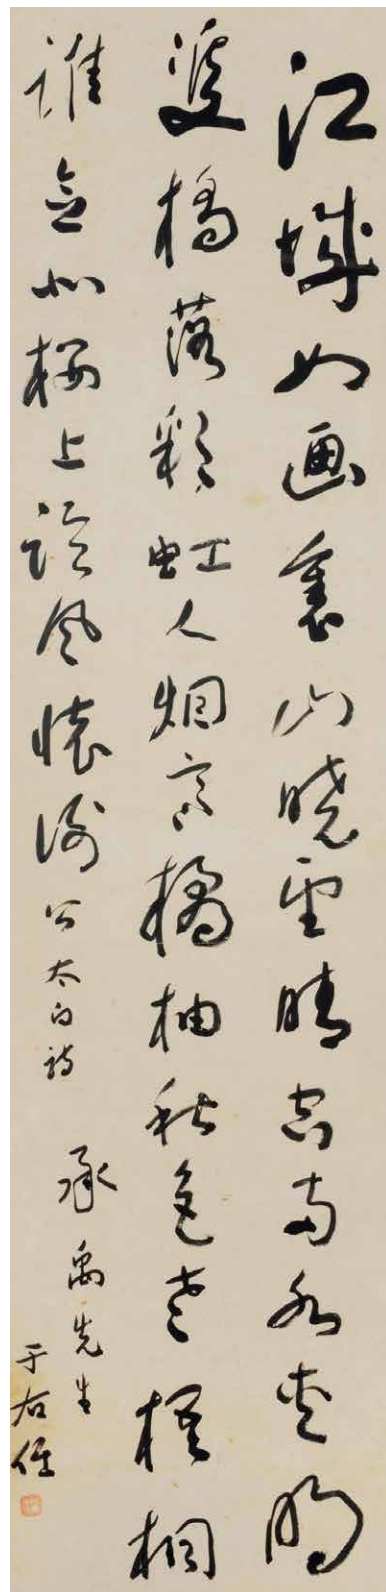 江城如画裏山曉望晴空兩水夾明
雙橋落彩虹人烟寒橘柚秋色老梧桐
誰念北樓上臨風懷謝公太白詩
承禹先生
于右任